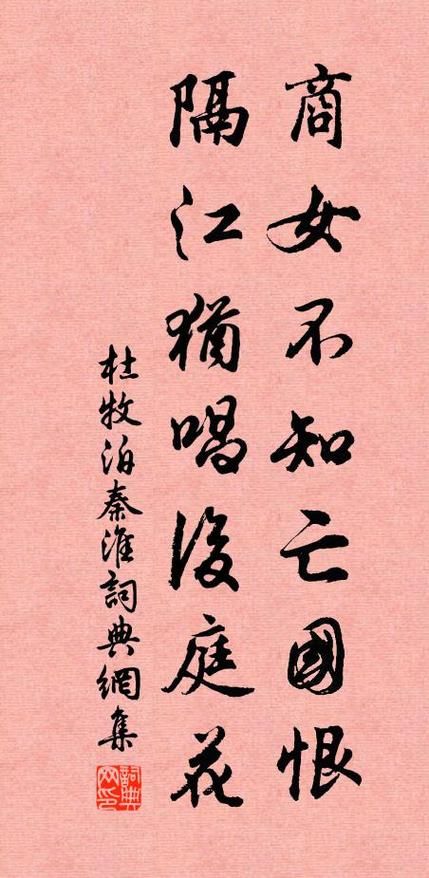 商女不知亡國恨
隔江猶唱後庭花
杜牧泊秦淮詞典網集
詞典网印